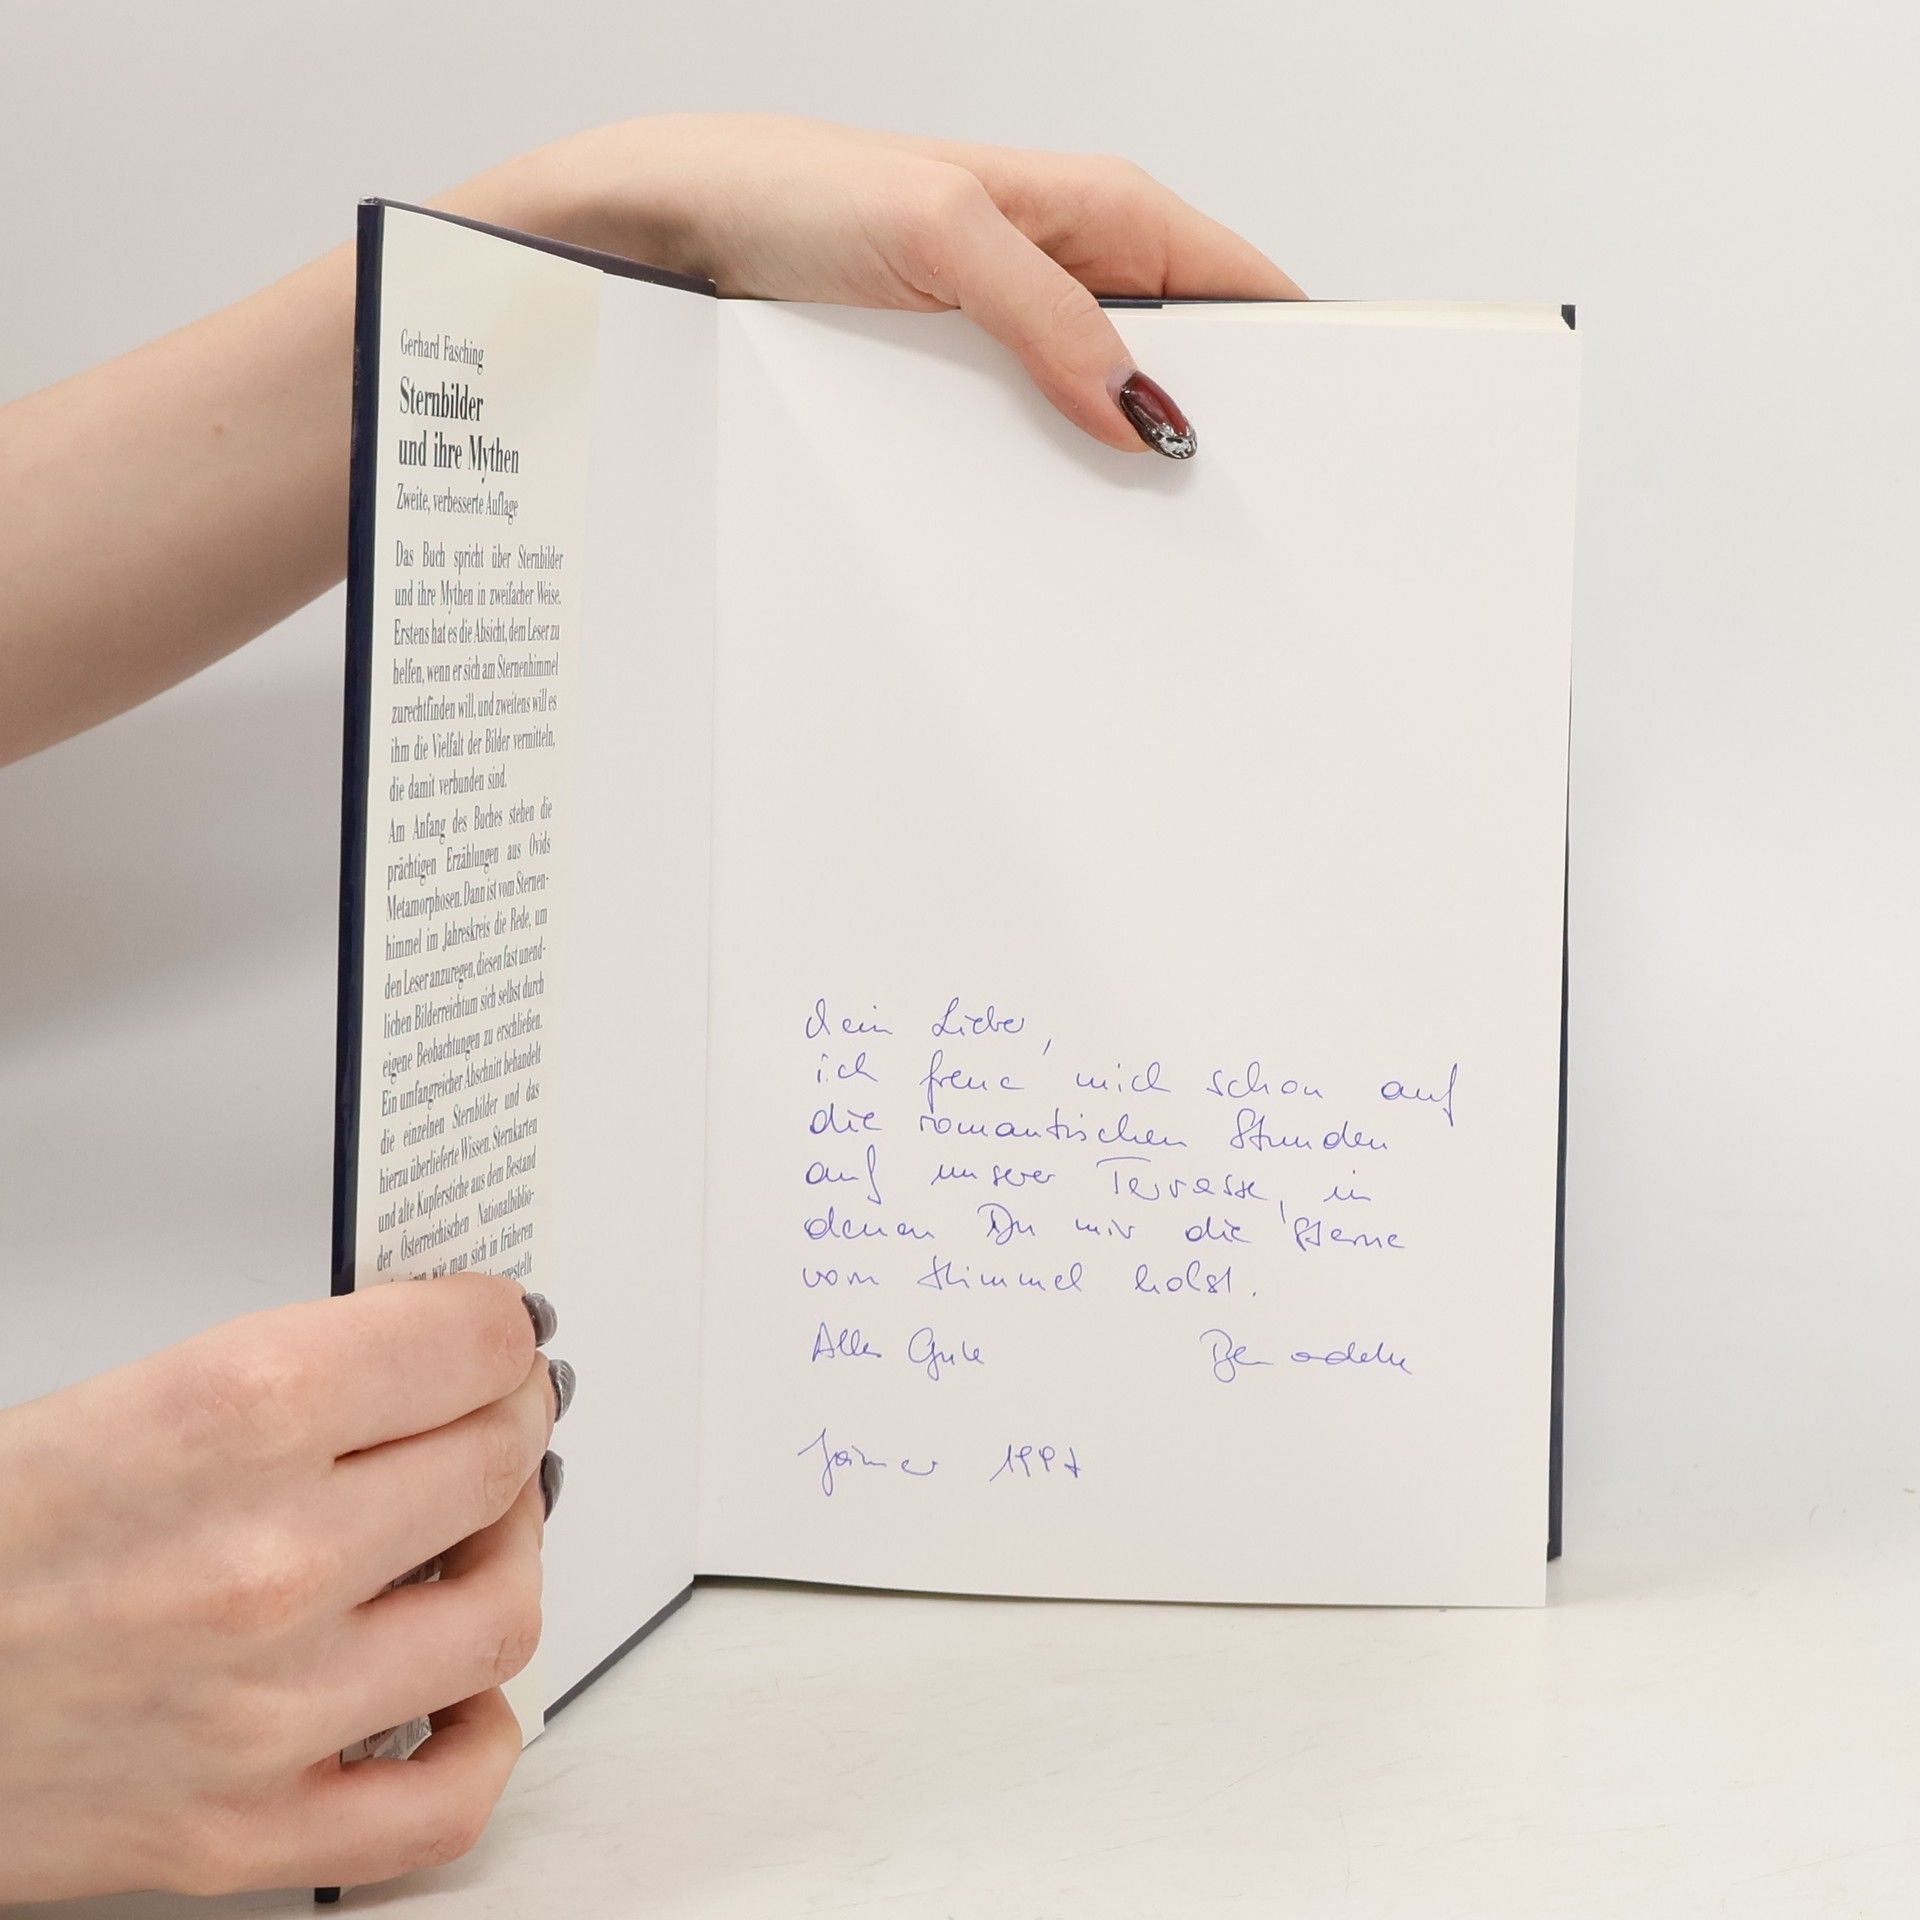 Gerhard Fasching
Sternbilder
und ihre Mythen
Zweite, verbesserte Auflage
Das Buch spricht über Sternbilder
und ihre Mythen in zweifacher Weise.
Erstens hat es die Absicht, dem Leser zu
helfen, wenn er sich am Sternenhimmel
zurechtfinden will, und zweitens will es
ihm die Vielfalt der Bilder vermitteln,
die damit verbunden sind.
Am Anfang des Buches stehen die
prächtigen Erzählungen aus Ovids
Metamorphosen. Dann ist vom Sternen-
himmel im Jahreskreis die Rede, um
den Leser anzuregen, diesen fast unend-
lichen Bilderreichtum sich selbst durch
eigene Beobachtungen zu erschließen.
Ein umfangreicher Abschnitt behandelt
die einzelnen Sternbilder und das
hierzu überlieferte Wissen. Sternkarten
und alte Kupferstiche aus dem Bestand
der Österreichischen Nationalbiblio-
wie man sich in früheren
Mein Lieber,
ich freue mich schon auf
die romantischen Stunden
auf unserer Terrasse, in
denen Du mir die Sterne
vom Himmel holst.
Alles Gute Bernadette
Jänner 1997